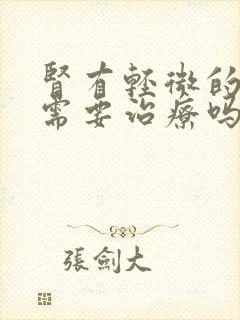 腎有輕微的
需要治療嗎
張劍大